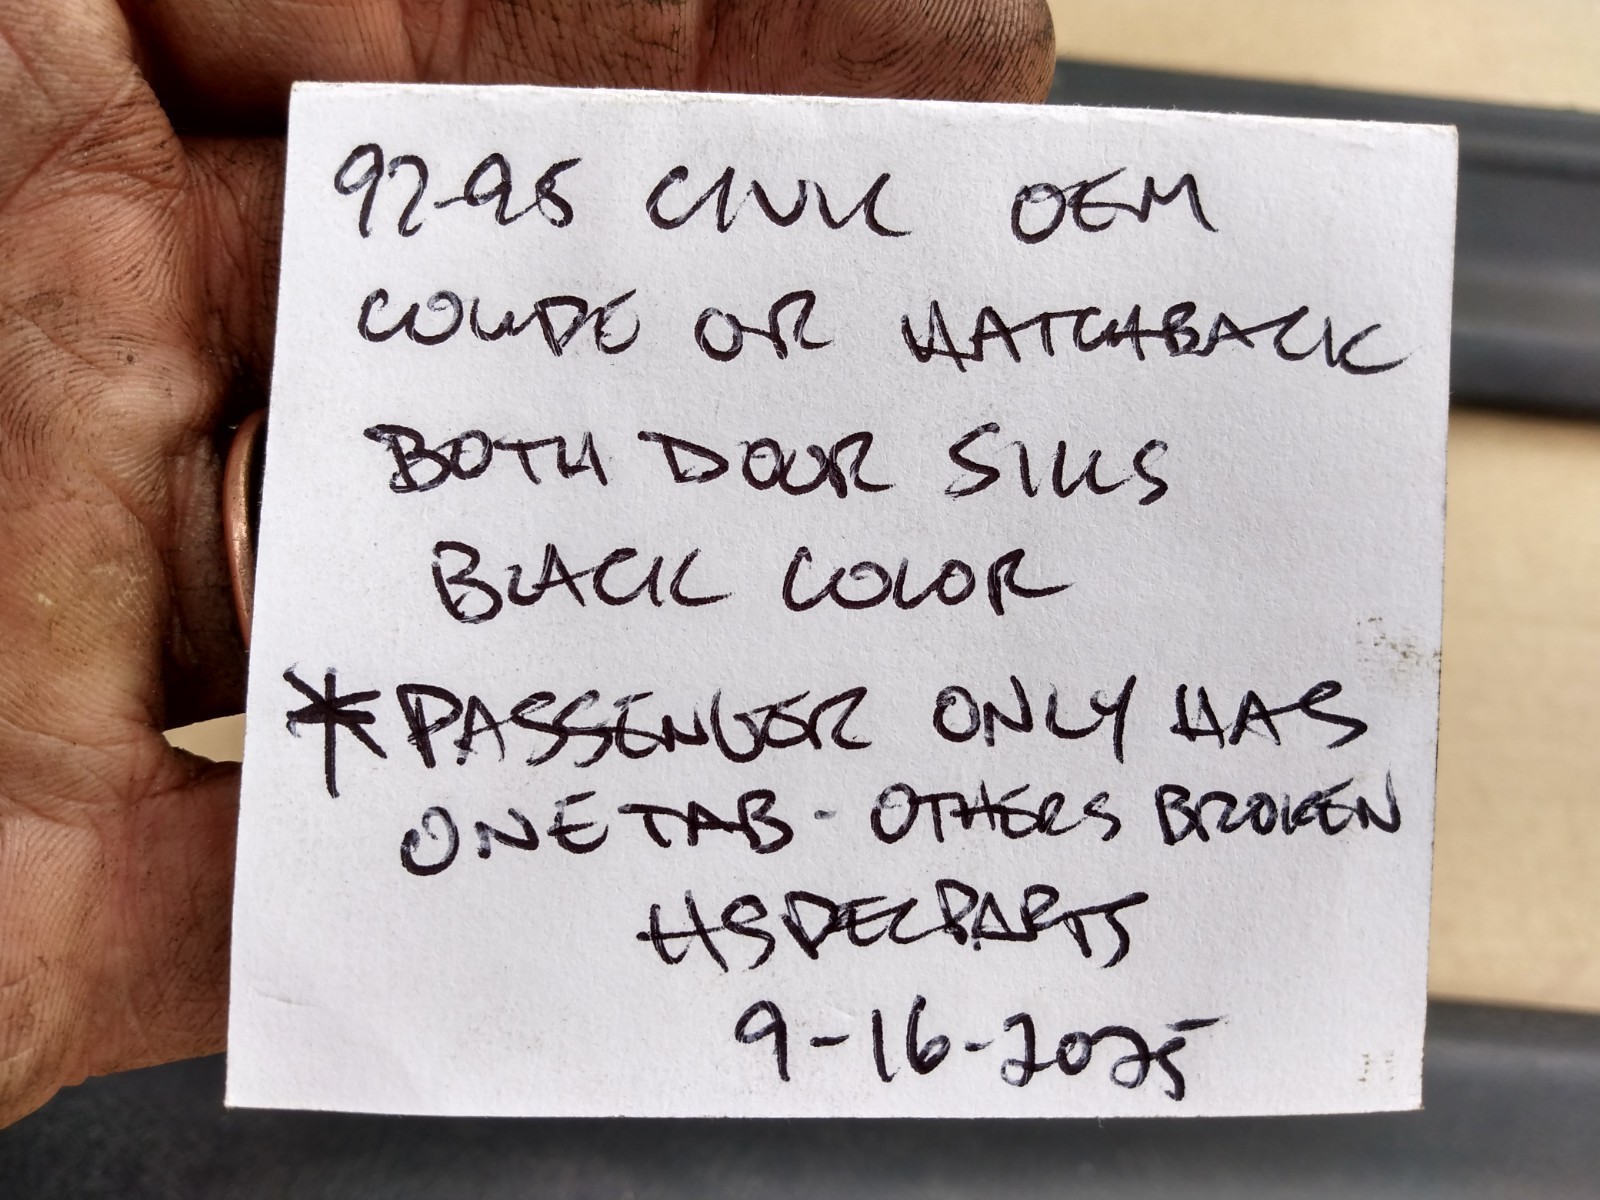 92-95 CIVIC OEM
COUPE OR HATCHBACK
BOTH DOOR SILLS
BLACK COLOR
* PASSENGER ONLY HAS
ONE TAB - OTHERS BROKEN
HSPECPARTS
9-16-2025